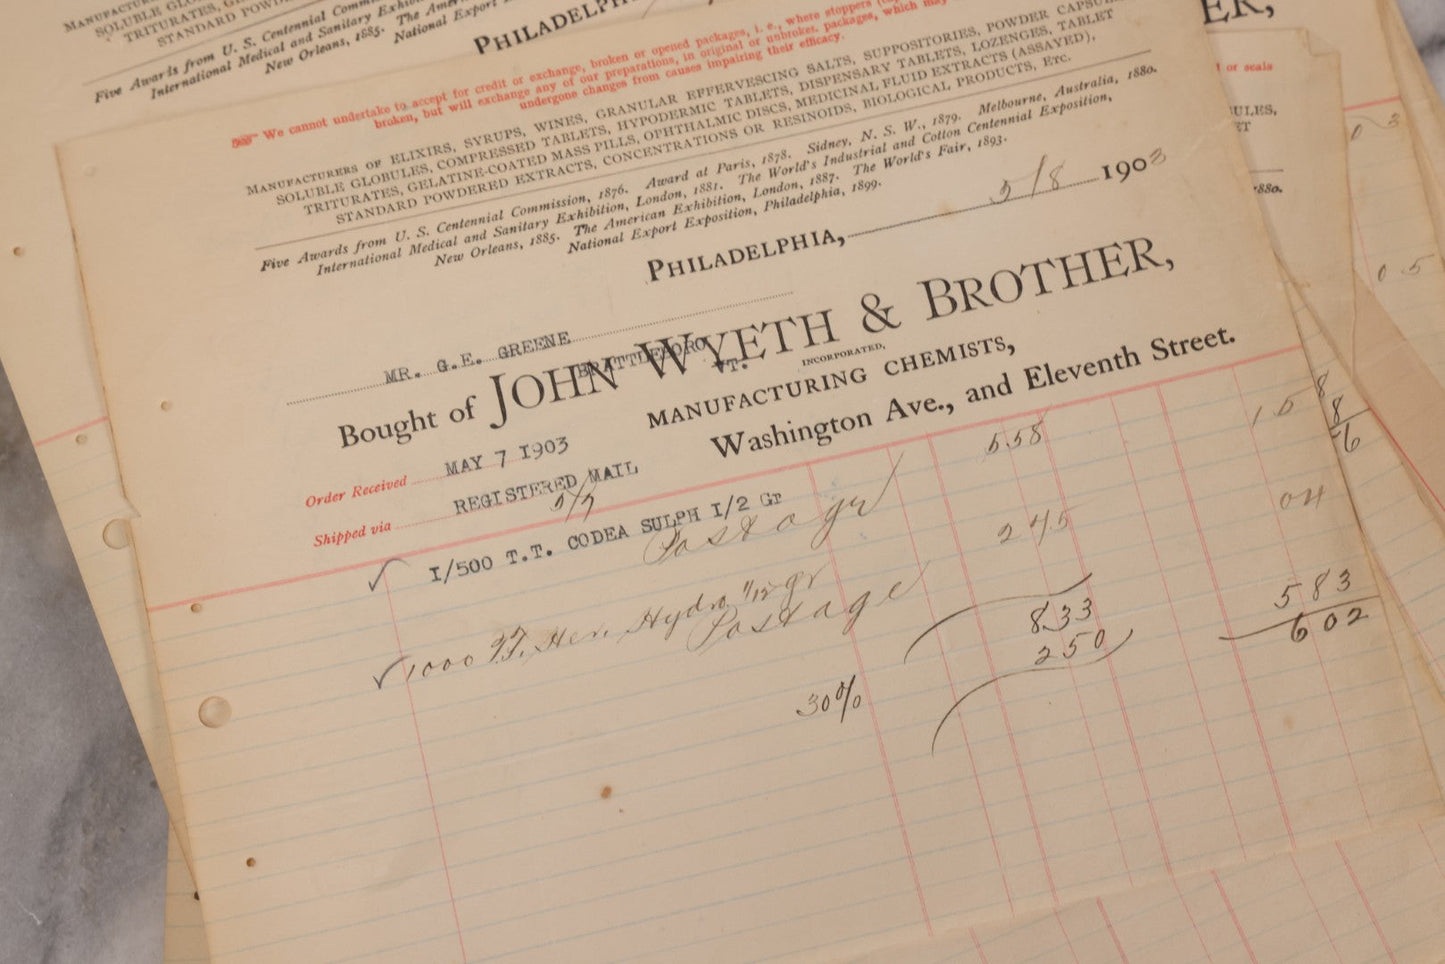 MANUFACTURERS
SOLUBLE GLO
TRITURATES, GE
STANDARD POWD
Five Awards from U. S. Centennial Comm
International Medical and Sanitary Exhib
New Orleans, 1885. The Amer
National Export
PHILADELPH
ER,
d or scale
ULES,
ET
1880.
0 3
0 5
We cannot undertake to accept for credit or exchange, broken or opened packages, i. e., where stoppers
broken, but will exchange any of our preparations, in original or unbroken packages, which may
undergone changes from causes impairing their efficacy.
MANUFACTURERS OF ELIXIRS, SYRUPS, WINES, GRANULAR EFFERVESCING SALTS, SUPPOSITORIES, POWDER CAPSU
SOLUBLE GLOBULES, COMPRESSED TABLETS, HYPODERMIC TABLETS, DISPENSARY TABLETS, LOZENGES, TABLET
TRITURATES, GELATINE-COATED MASS PILLS, OPHTHALMIC DISCS, MEDICINAL FLUID EXTRACTS (ASSAYED),
STANDARD POWDERED EXTRACTS, CONCENTRATIONS OR RESINOIDS, BIOLOGICAL PRODUCTS, ETC.
Five Awards from U. S. Centennial Commission, 1876. Award at Paris, 1878. Sidney, N. S. W., 1879. Melbourne, Australia, 1880.
International Medical and Sanitary Exhibition, London, 1881. The World's Industrial and Cotton Centennial Exposition,
New Orleans, 1885. The American Exhibition, London, 1887. The World's Fair, 1893.
National Export Exposition, Philadelphia, 1899.
PHILADELPHIA, 5/8 1903
MR. G.E. GREENE
BRATTLEBORO
VT.
Bought of JOHN WYETH & BROTHER,
INCORPORATED,
MANUFACTURING CHEMISTS,
Washington Ave., and Eleventh Street.
Order Received MAY 7 1903
Shipped via REGISTERED MAIL
5/7
1/500 T.T. CODEA SULPH 1/2 Gr 5.58
Postage 1 5 8
1000 T.T. Her. Hydro 1/12 gr 2 75
Postage 04
8 33
2 50 5 8 3
30% 6 02
8
6